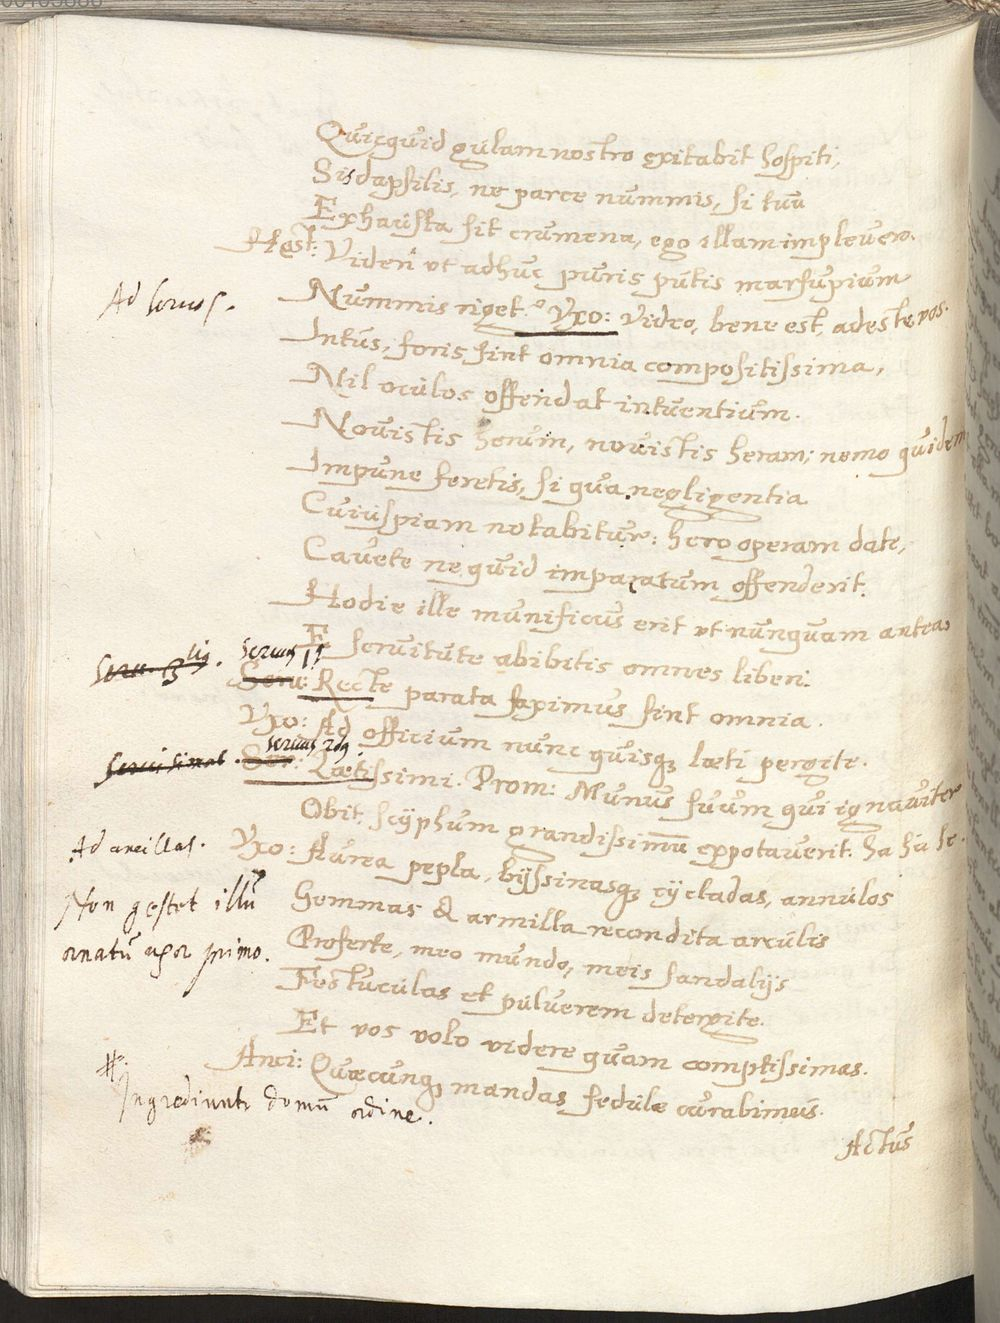 Quicquid gulam nostro exitabit hospiti,
Sis dapsilis, ne parce nummis, si tuũ
Exhausta sit crumena, ego illam implevero.
Hosp: Viden' ut adhuc puris putis marsupium
Ad servos.
Nummis riget? Uxo: Video, bene est, adeste vos.
Intus, foris sint omnia compositissima,
Nil oculos offendat intuentium.
Novistis herum, novistis heram; nemo quidem
Impune feretis, si qua negligentia
Cuiuspiam notabitur: hero operam date,
Cavete ne quid imparatum offenderit.
Hodie ille munificus erit ut nunquam antea
E servitute abibitis omnes liberi.
Servus 1us
Serv: Recte parata faximus sint omnia.
Uxo: Ad officium nunc quisq; læti pergite.
Servi simul. servus 2dus
Ser: Lætissimi. Prom: Munus suum qui ignaviter
Obit, scyphum grandissimũ expotaverit. ha ha he.
Ad ancillas.
Uxo: Aurea pepla, byssinasq; cycladas, annulos
Non gestet illũ
Gemmas & armilla recondita arculis
ornatũ uxor primo.
Proferte, meo mundo, meis sandalijs
Festuculas et pulverem detergite.
Et vos volo videre quam comptissimas.
Anci: Quæcunq; mandas sedulæ curabimus.
#
Ingrediunt domũ ordine.
Actus